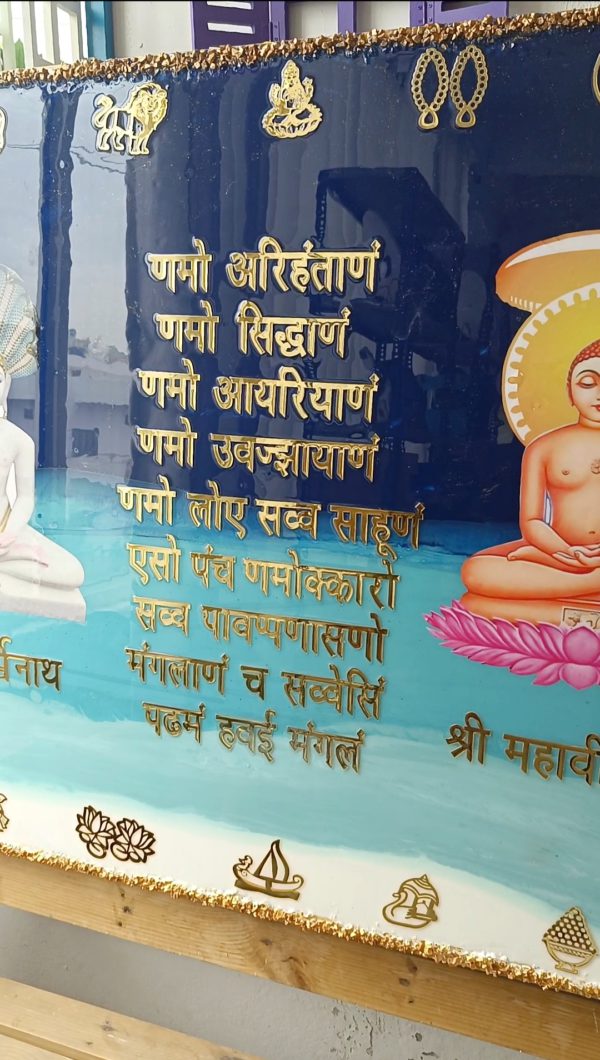 णमो अरिहंताणं
णमो सिद्धाणं
णमो आयरियाणं
णमो उवज्झायाणं
णमो लोए सव्व साहूणं
एसो पंच णमोक्कारो
सव्व पावप्पणासणो
मंगलाणं च सव्वेसिं
पढमं हवई मंगलं
श्री